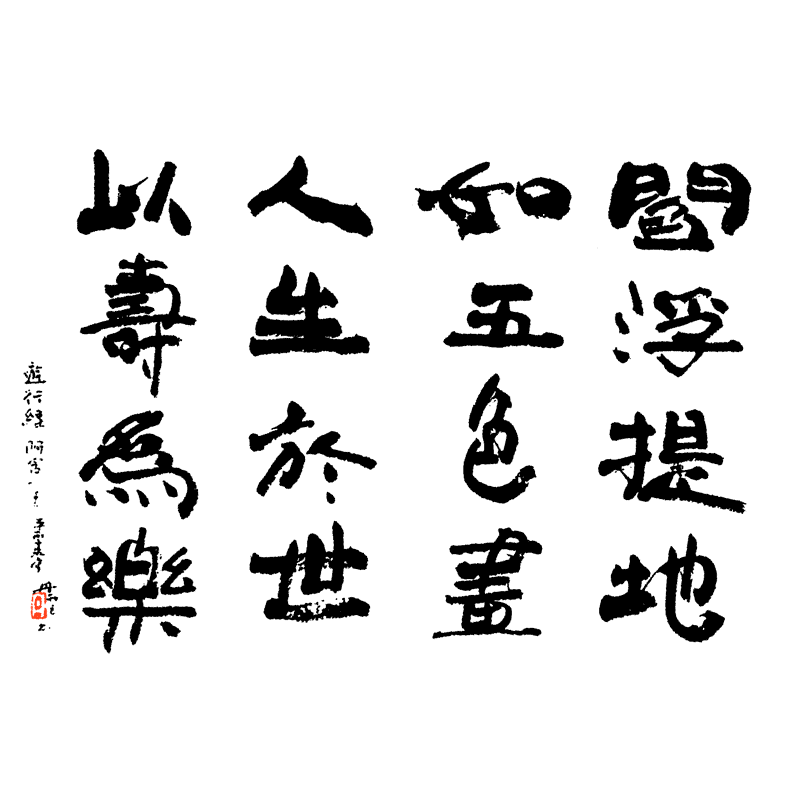 閻浮提地
如五色畫
人生於世
以壽為樂
遊行經 阿含一